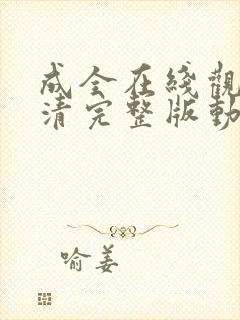 成全在綫觀
清完整版動
喻姜